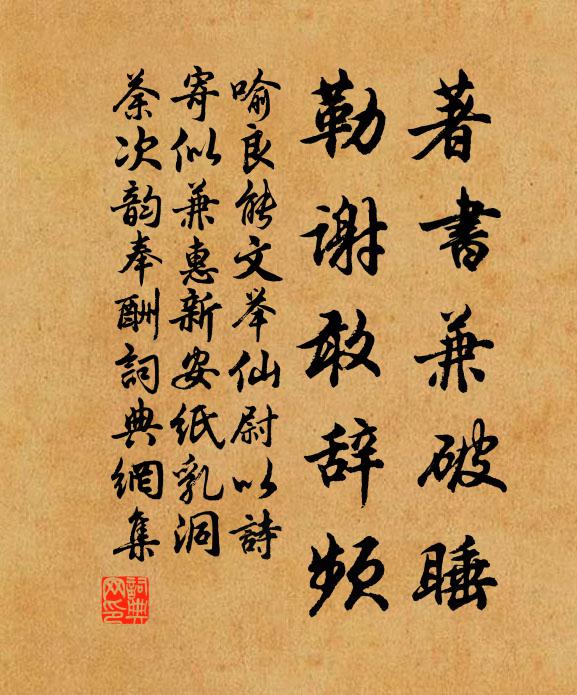 著書兼破睡
勒謝敢辞頻
喻良能文举仙尉以詩
寄似兼惠新安紙乳洞
茶次韵奉酬詞典網集
詞典網印